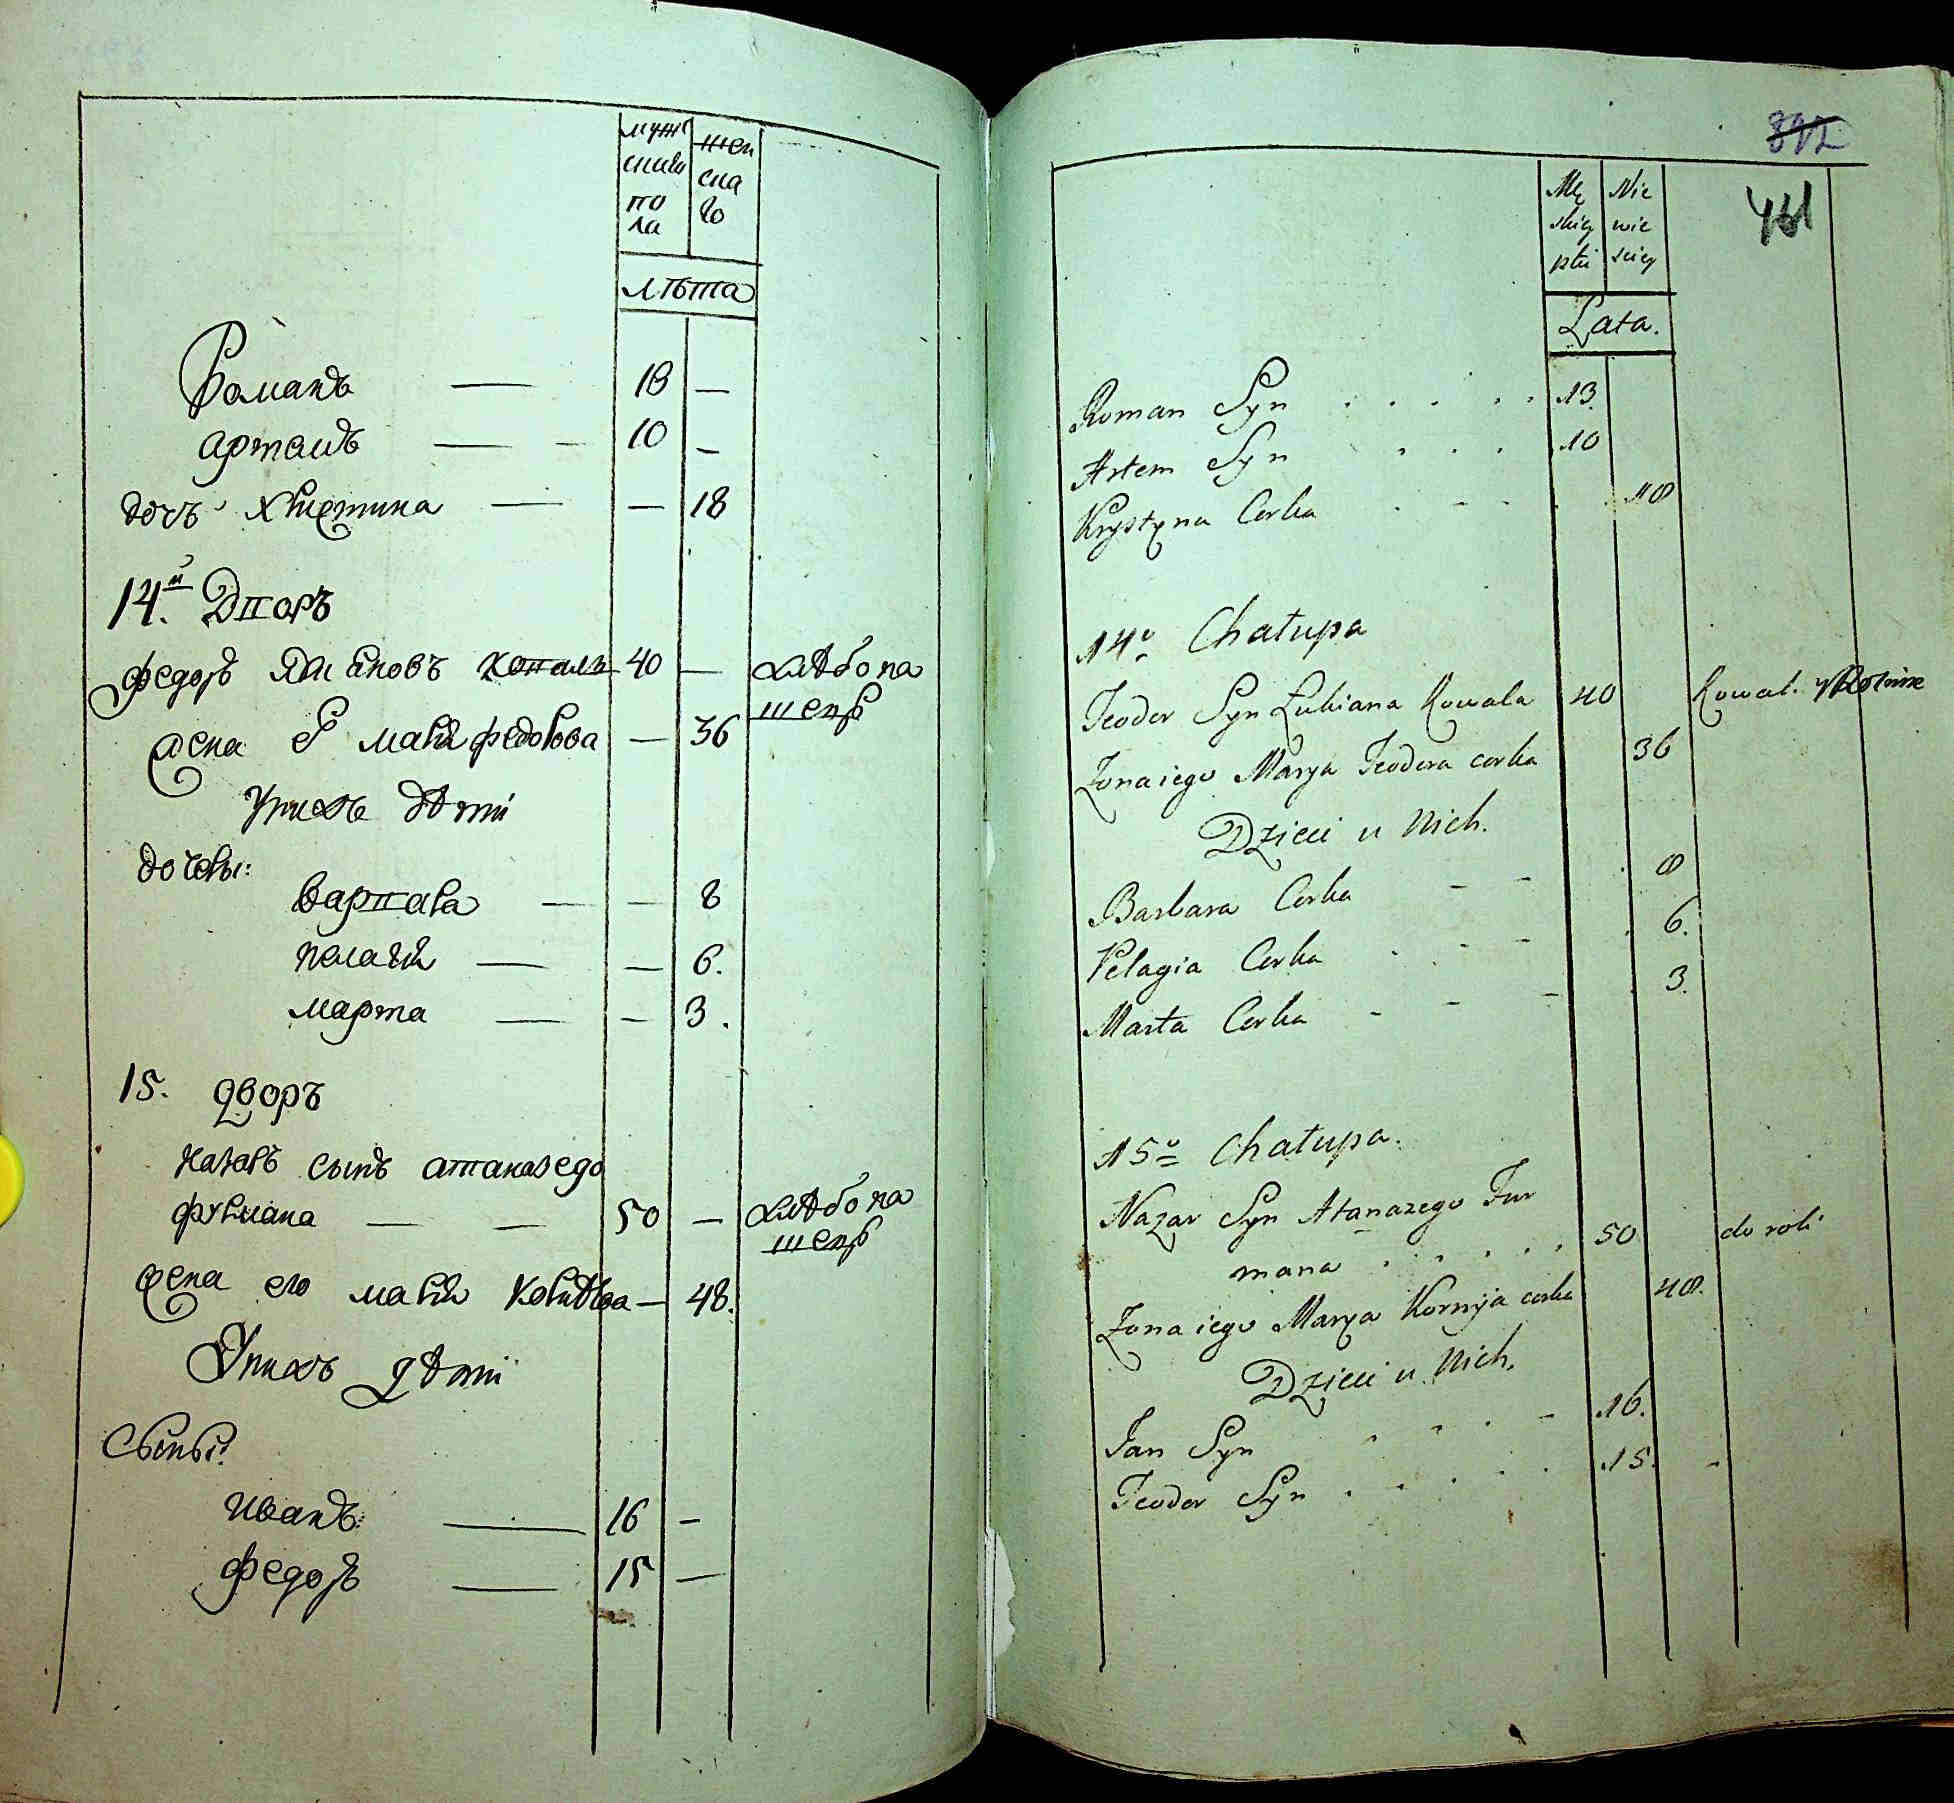 мужескаго пола
женскаго
лѣта
Романъ — 18 —
Артемъ — — 10 —
дочъ Християна — — 18
14.й Дворъ
Федоръ Коваль 40 — хлѣбопашецъ
жена Е Мария Федорова — 36
У нихъ дѣти
дочеры:
Варвара — — 8
Пелагия — — 6.
Марта — — 3.
15. дворъ
Назаръ сынъ Атаназего
Фурмана — — 50 — хлѣбопашецъ
жена его Мария Корнѣева — 48.
У нихъ дѣти
Сыны:
Иванъ: — 16 —
Федоръ — 15 —
892
Męskiey płci
Niewieściey
Lata.
Roman Syn . . . . . 13.
Artem Syn . . . . 10
Krystyna Corka . - - . 18
14o Chałupa
Teodor Syn Łukiana Kowala 40 Kowal.
Zona iego Marya Teodora corka 36
Dzieci u Nich.
Barbara Corka - - 8
Pelagia Corka . - - 6.
Marta Corka - - - 3.
15o Chałupa.
Nazar Syn Atanazego Fur
mana . . . . . 50 do roli
Zona iego Marya Kornija corka 48.
Dzieci u Nich.
Jan Syn - - . - 16.
Teodor Syn . . . . . 15. -